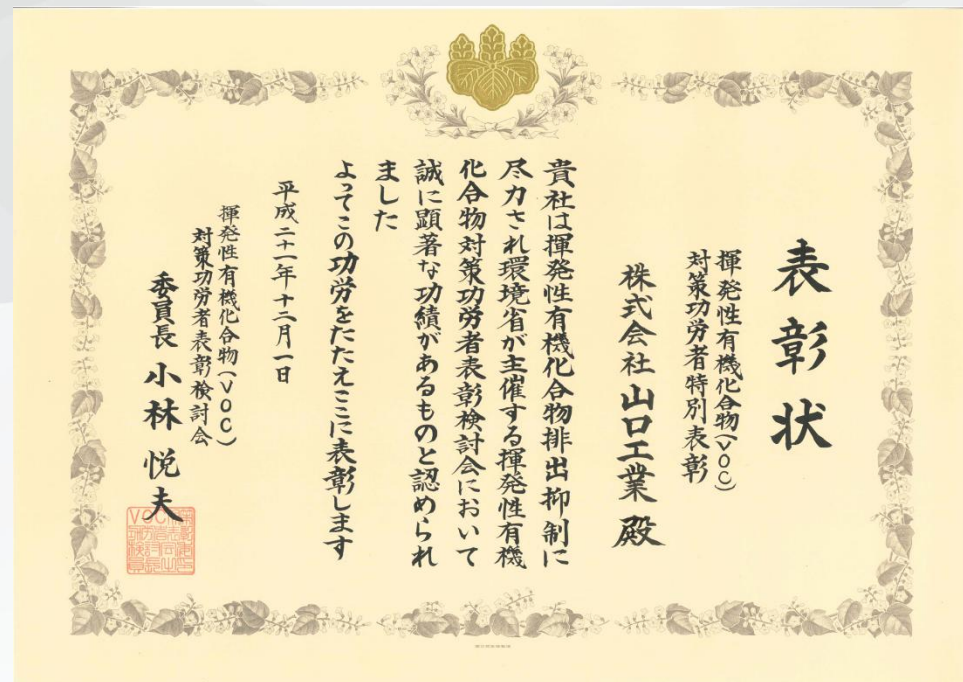 表彰状
揮発性有機化合物(VOC)
対策功労者特別表彰
株式会社 山口工業 殿
貴社は揮発性有機化合物排出抑制に
尽力され環境省が主催する揮発性有機
化合物対策功労者表彰検討会において
誠に顕著な功績があるものと認められ
ました
よってこの功労をたたえここに表彰します
平成二十一年十二月一日
揮発性有機化合物(VOC)
対策功労者表彰検討会
委員長 小林 悦夫